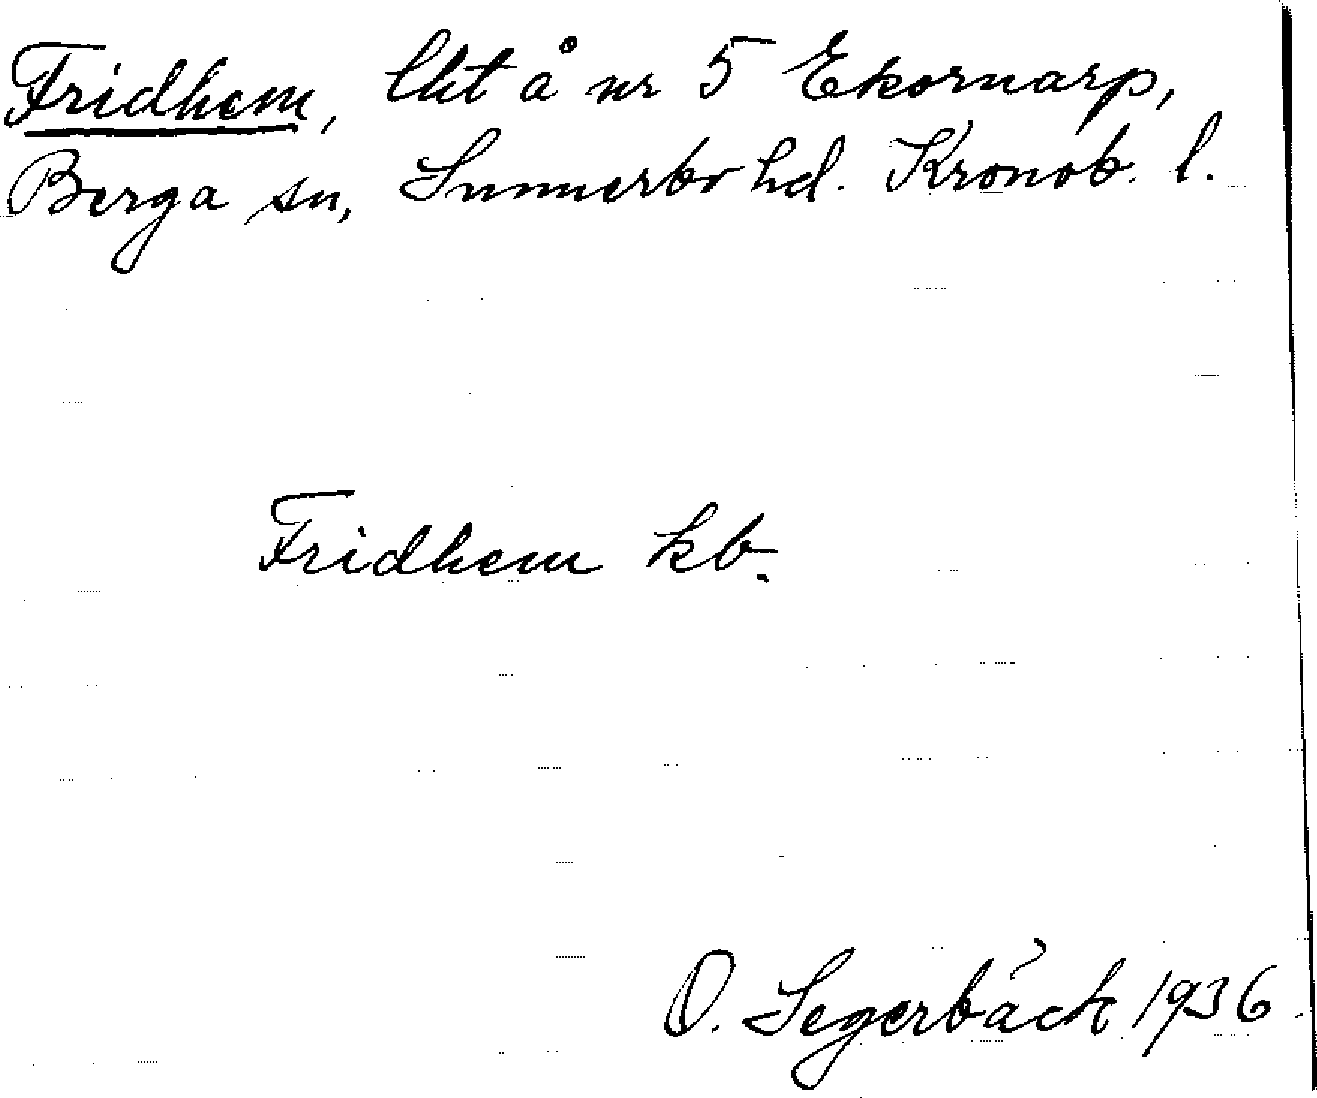 Fridhem, lht å nr 5 Ekornarp,
Berga sn, Sunnerbo hd. Kronob. l.
Fridhem kb.
O. Segerbäck 1936